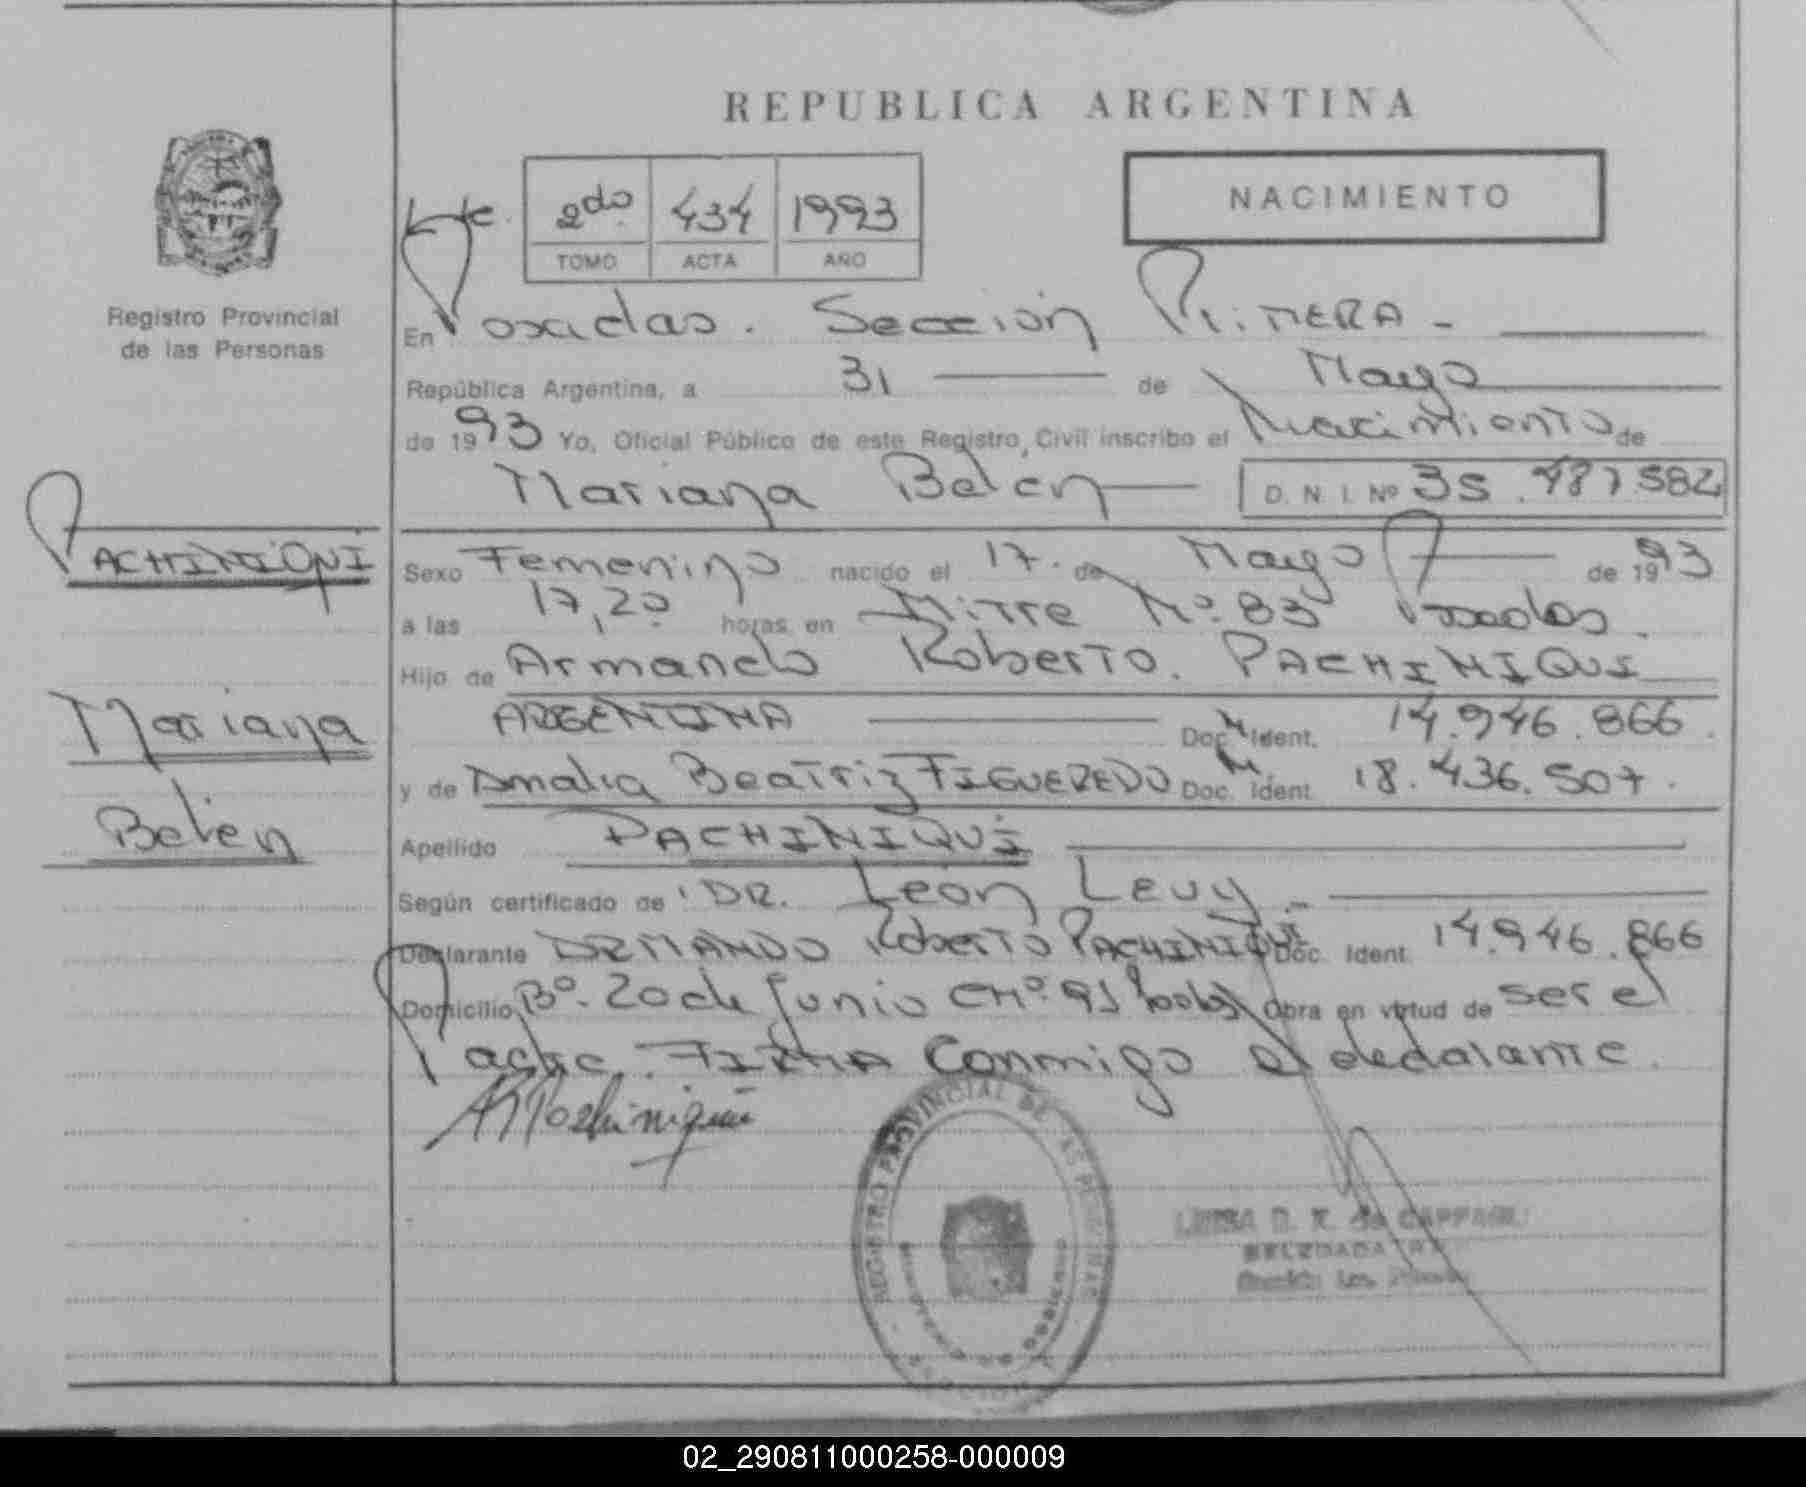 REPUBLICA ARGENTINA
2do. 434 1993
TOMO ACTA AÑO
NACIMIENTO
Registro Provincial
de las Personas
En Posadas. Sección PRIMERA -
República Argentina, a 31 de Mayo
de 1993 Yo, Oficial Público de este Registro Civil inscribo el Nacimiento de
Mariana Belén D. N. I. Nº 35.487.582
PACHINIQUI
Mariana
Belén
Sexo Femenino nacido el 17. de Mayo de 1993
a las 17,20 horas en Mitre Nº. 83 Posadas.
Hijo de Armando Roberto. PACHINIQUI
ARGENTINA Doc. M Ident. 14.946.866.
y de Amalia Beatriz FIGUEREDO Doc. M Ident. 18.436.507.
Apellido PACHINIQUI
Según certificado de DR. León Levy.-
Declarante ARMANDO Roberto PACHINIQUI Doc. Ident. 14.946.866
Domicilio Bº. 20 de Junio CNº. 91 Obra en virtud de ser el
Padre. FIRMA Conmigo el declarante.
REGISTRO PROVINCIAL DE LAS PERSONAS
LUISA D. K. de
DELEGADA
02_290811000258-000009